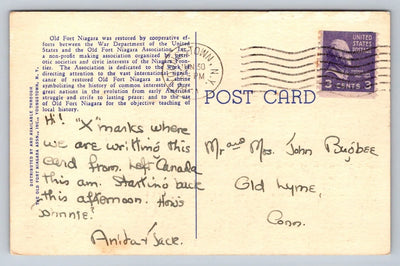 Old Fort Niagara was restored by cooperative ef-
forts between the War Department of the United
States and the Old Fort Niagara Association, Inc.,
a non-profit making association organized by patri-
otic societies and civic interests of the Niagara Fron-
tier. The Association is dedicated to the work of
directing attention to the vast international signifi-
cance of restored Old Fort Niagara as a shrine
symbolizing the history of common interests of three
great nations in the evolution from early American
struggle and strife to lasting peace; and to the use
of Old Fort Niagara for the objective teaching of
local history.
DISTRIBUTED BY AND AVAILABLE THROUGH
THE OLD FORT NIAGARA ASSN., INC., YOUNGSTOWN, N. Y.
Hi! "X" marks where
we are writing this
card from. Left Canada
this am. Starting back
this afternoon. How's
Johnnie?
Anita & Jack.
TOWN, N.Y.
JUN 30
PM
UNITED
STATES
POSTAGE
3 CENTS 3
POST CARD
Mr and Mrs. John Bugbee
Old Lyme,
Conn.